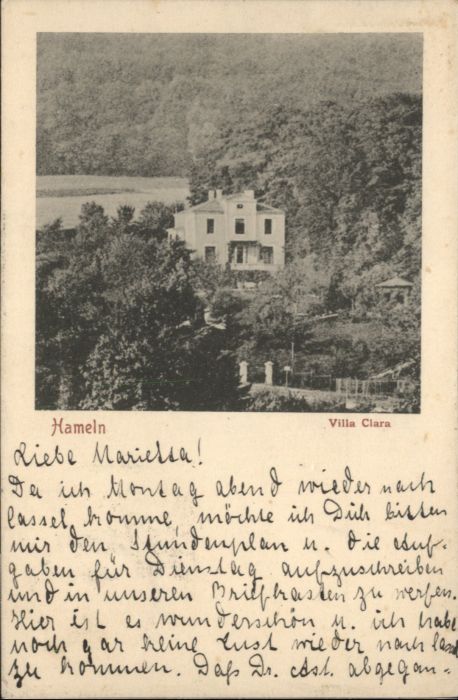 Hameln
Villa Clara
Liebe Marietta!
Da ich Montag abend wieder nach
Cassel komme, möchte ich Dich bitten
mir den Stundenplan u. die Auf-
gaben für Dienstag aufzuschreiben
und in unseren Briefkasten zu werfen.
Hier ist es wunderschön u. ich habe
noch gar keine Lust wieder nach Cassel
zu kommen. Daß Dr. Ast. abgegan-